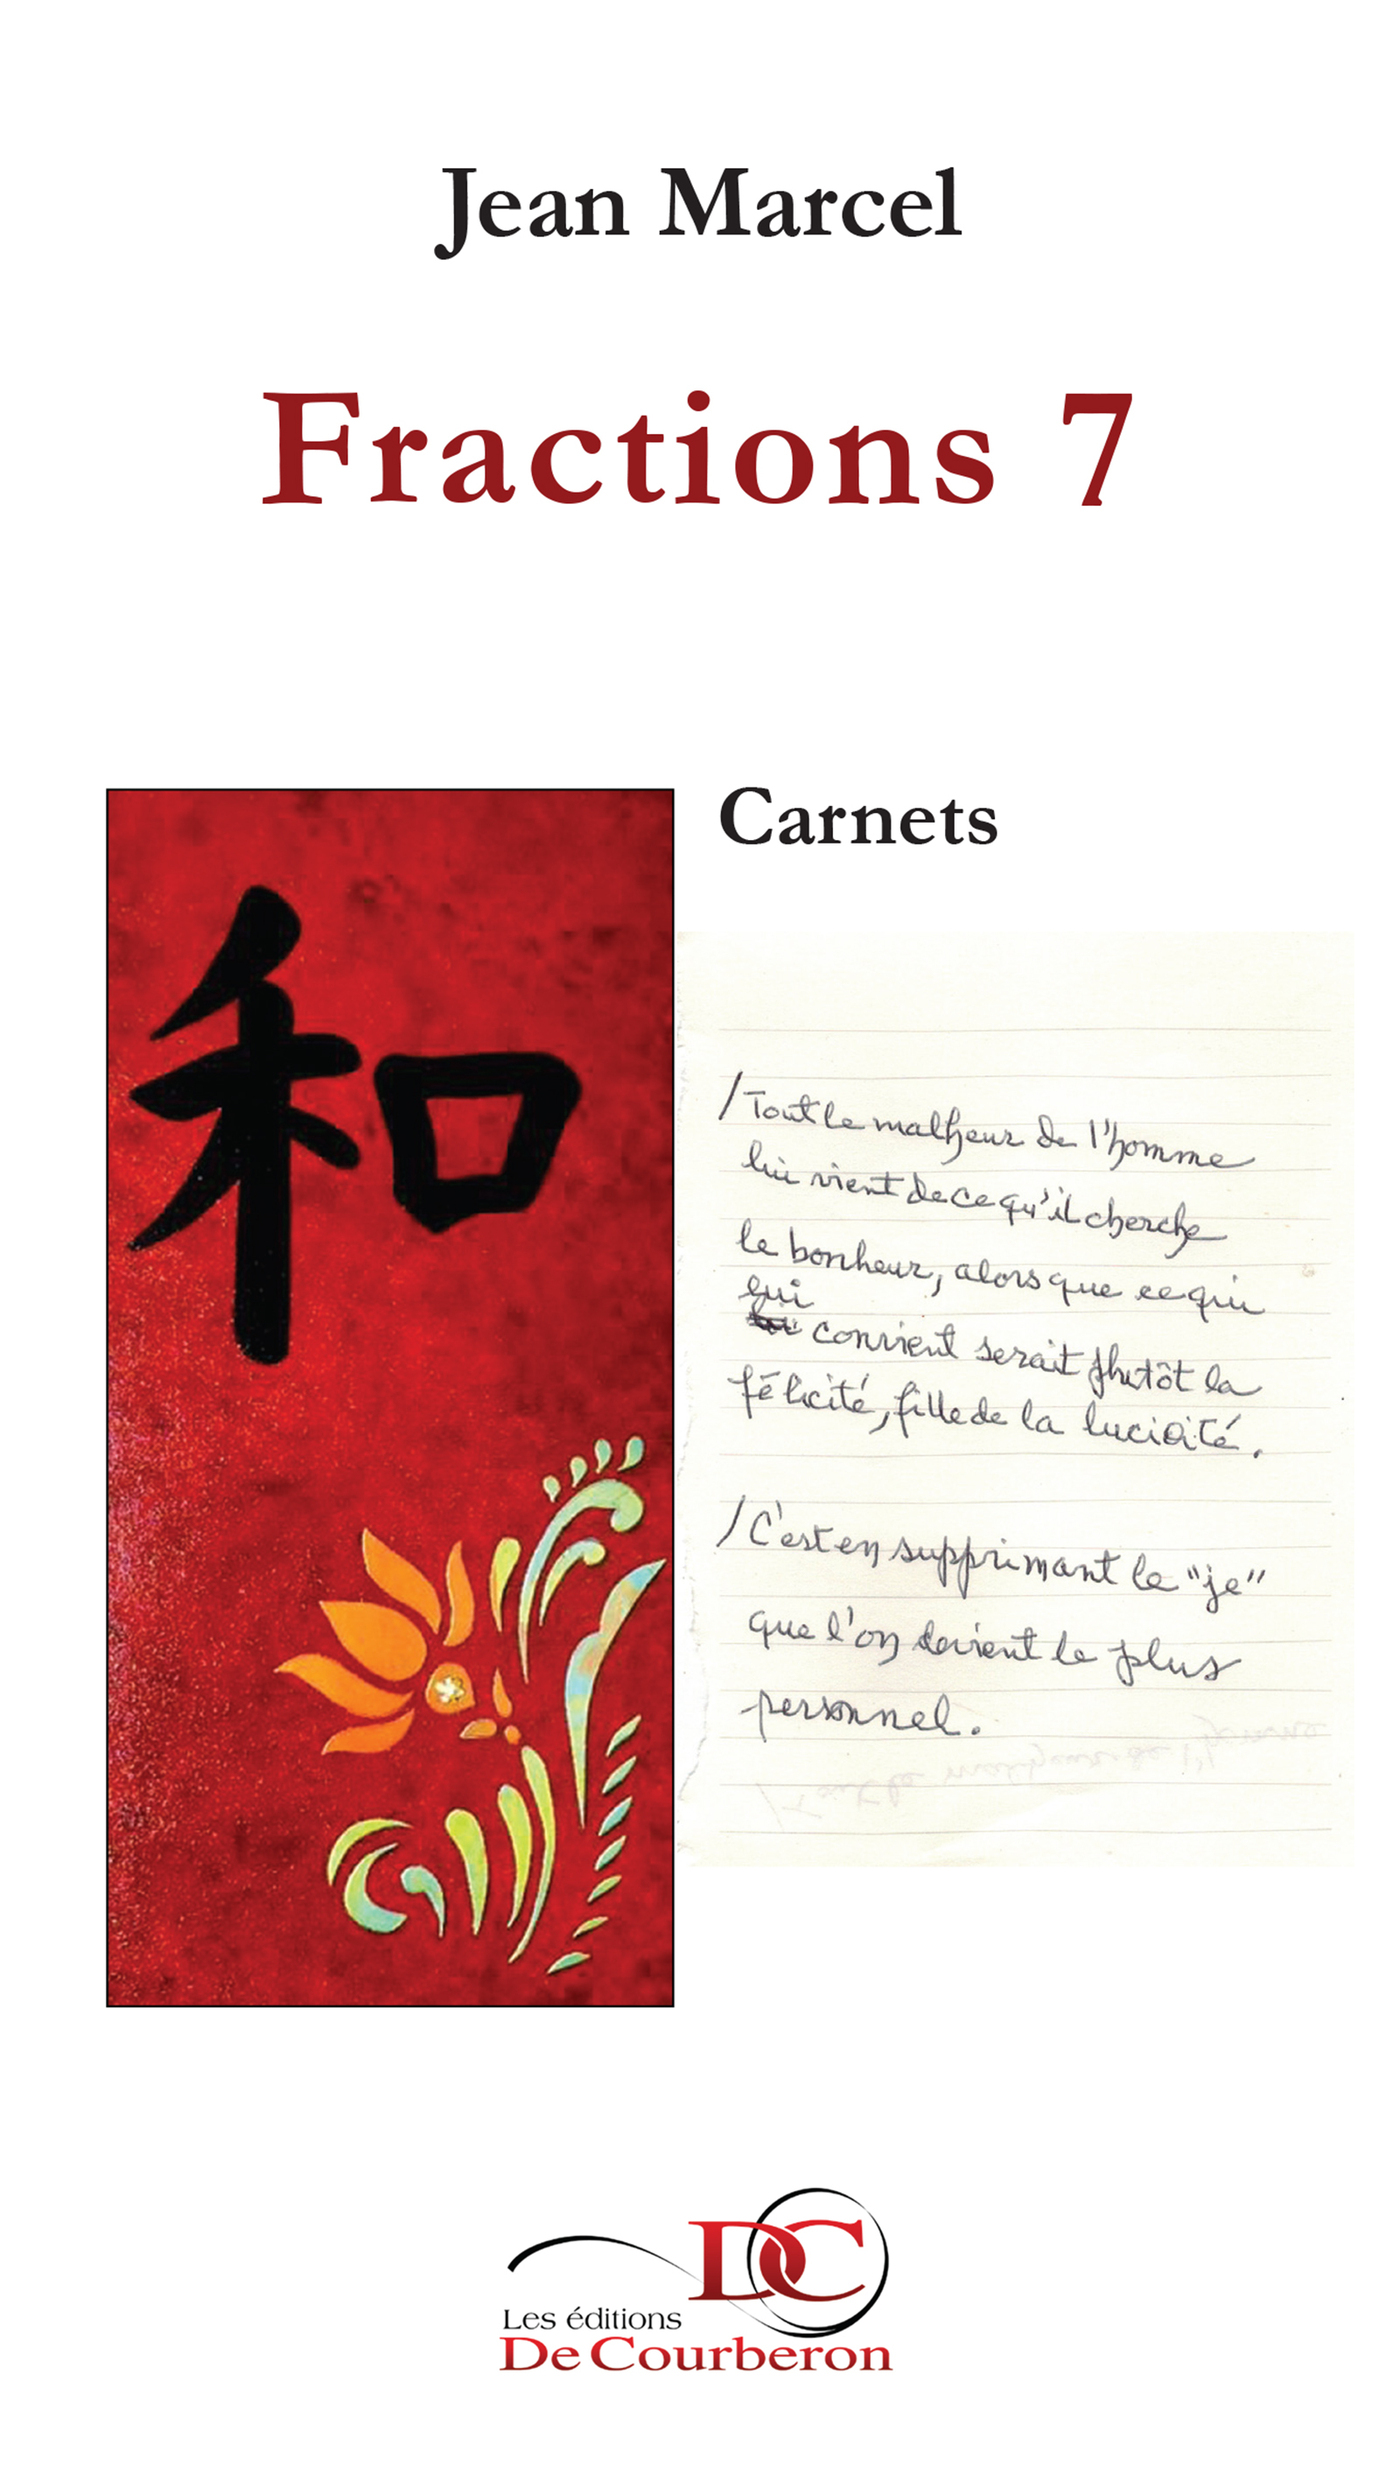 Jean Marcel
Fractions 7
Carnets
和
/Tout le malheur de l'homme
lui vient de ce qu'il cherche
le bonheur, alors que ce qui
lui
convient serait plutôt la
félicité, fille de la lucidité.
/C'est en supprimant le "je"
que l'on devient le plus
personnel.
DC
Les éditions
De Courberon